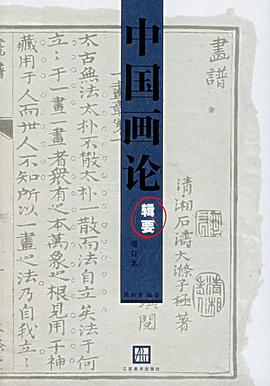 中国画论
辑要
增订本
周积寅 编著
江苏美术出版社
畫譜
清·湘石濤大滌子極著
閱
一畫章第一
太古無法太朴不散太朴一散而法自立矣法于何
立立于一畫一畫者衆有之本萬象之根見用于神
藏用于人而世人不知所以一畫之法乃自我立